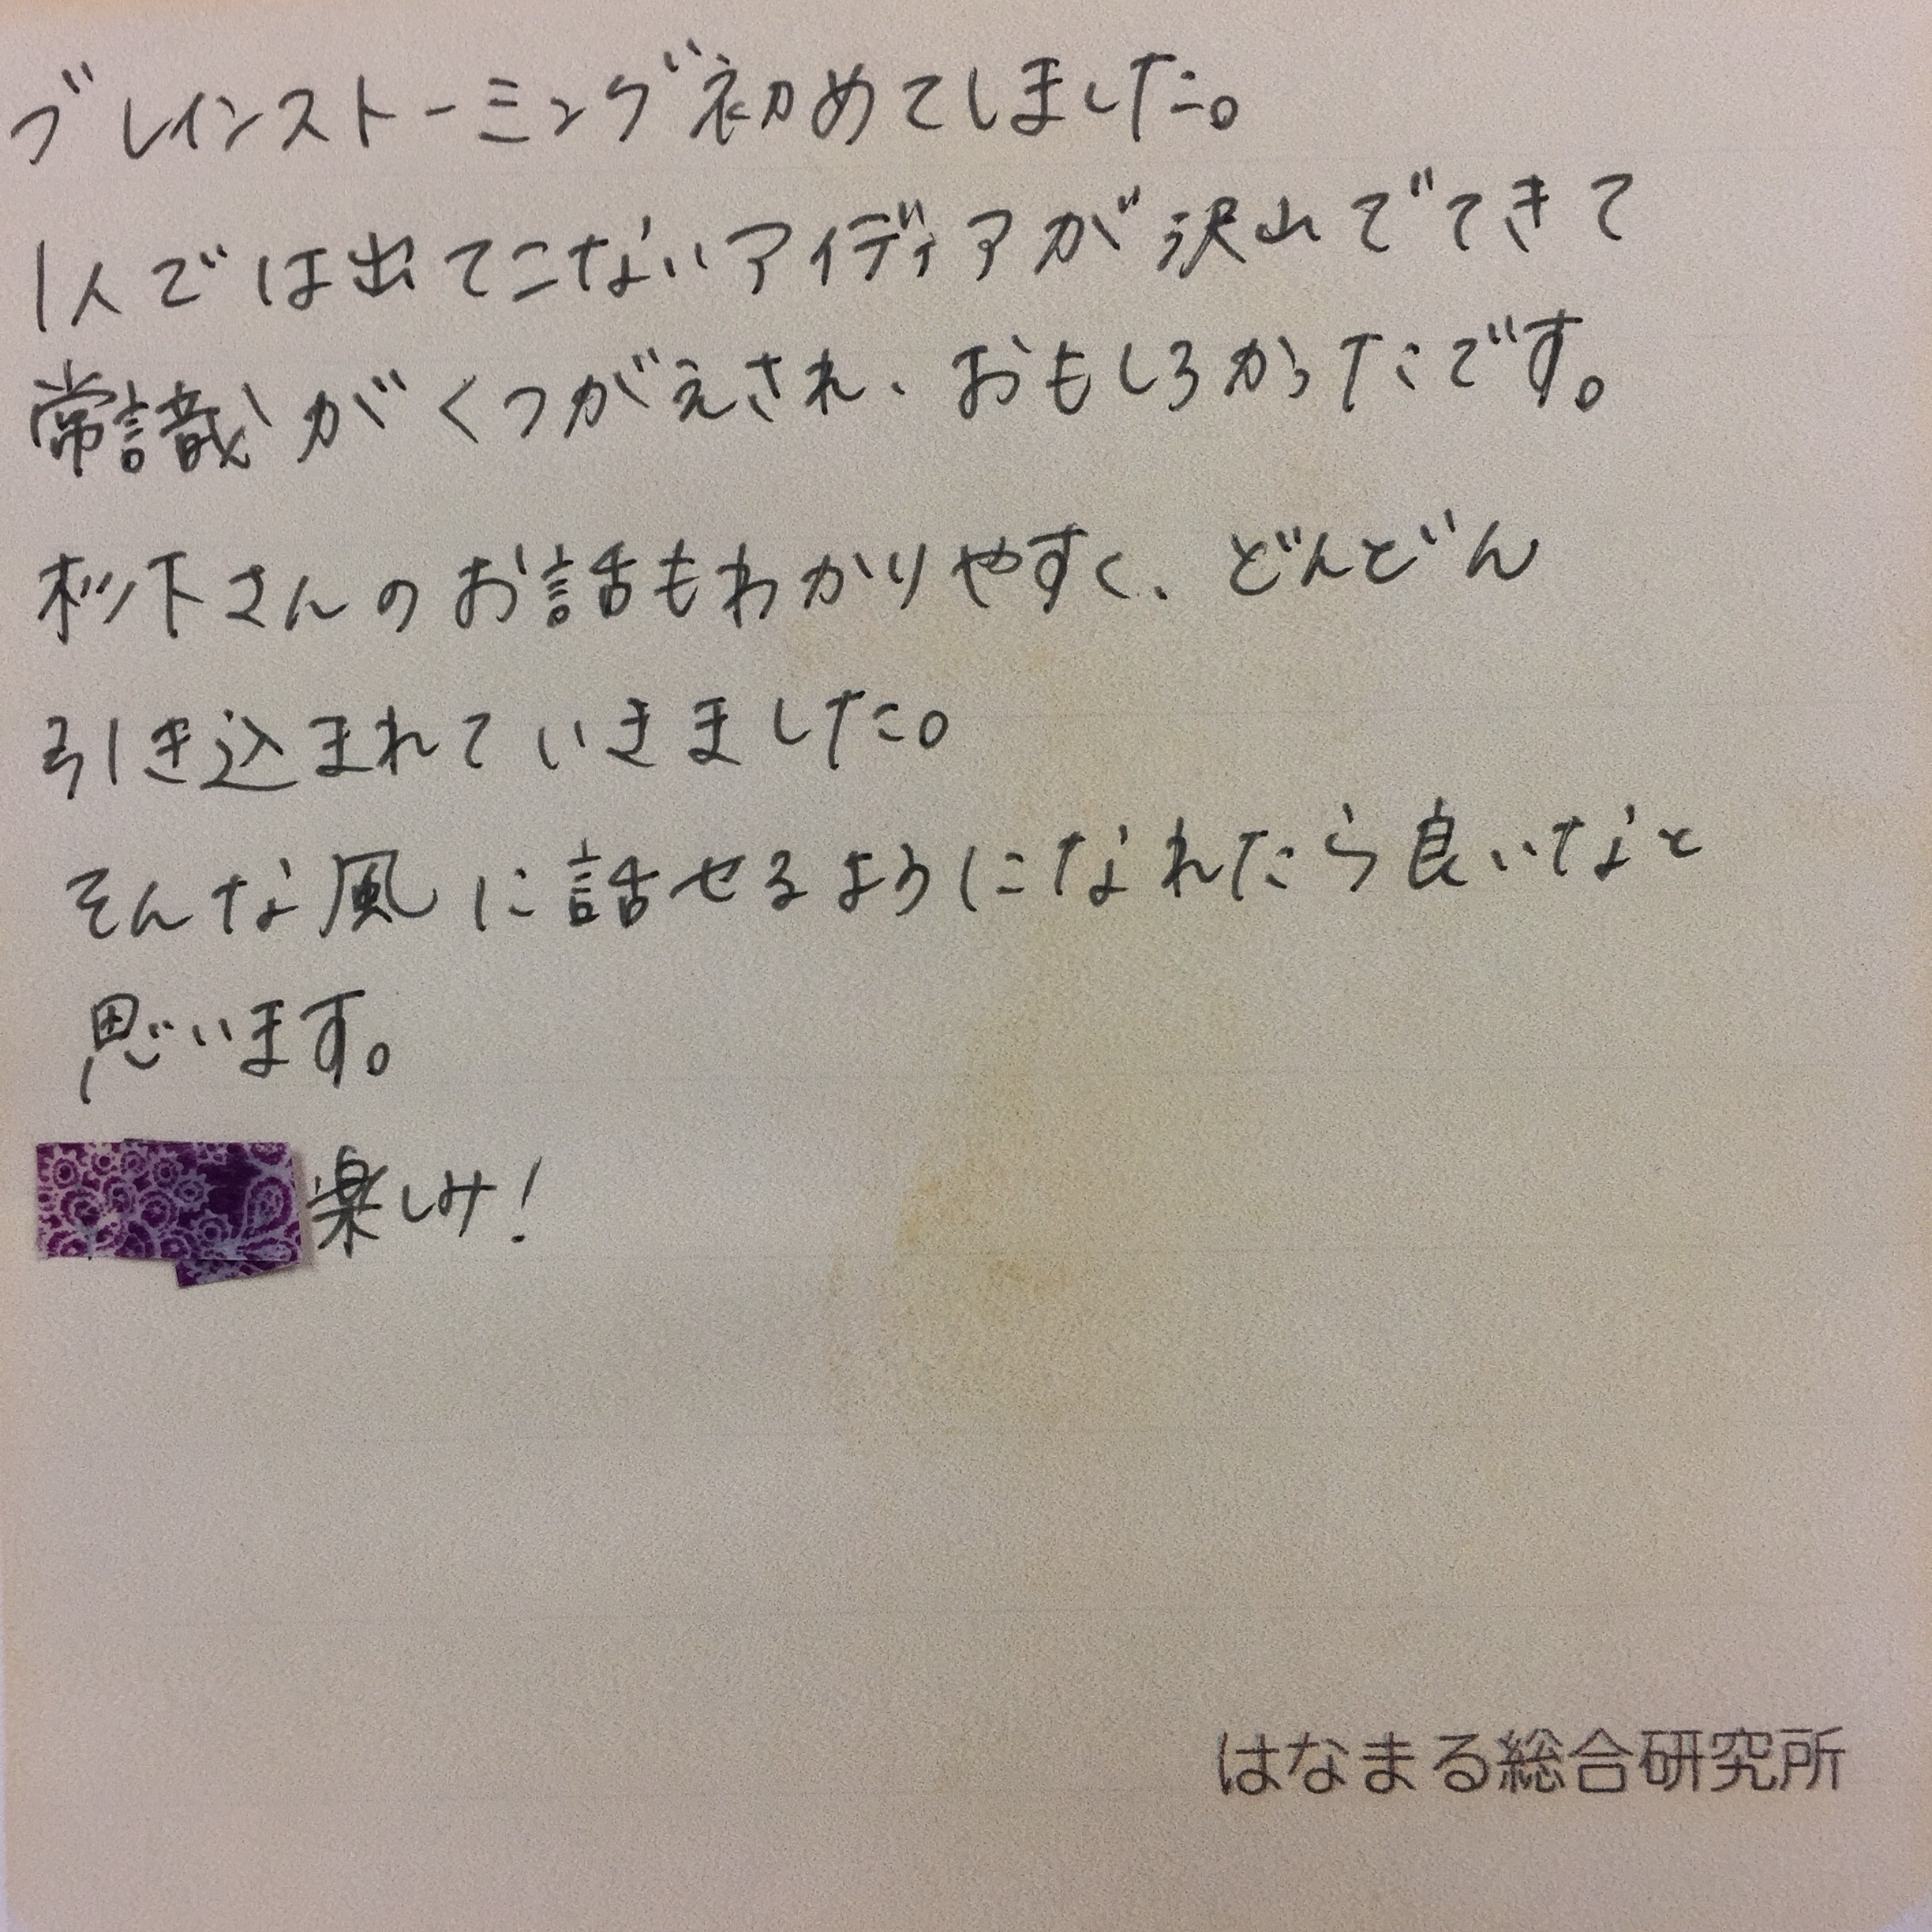 ブレインストーミング初めてしました。
1人では出てこないアイディアが沢山でてきて
常識がくつがえされ、おもしろかったです。
杉下さんのお話もわかりやすく、どんどん
引き込まれていきました。
そんな風に話せるようになれたら良いなと
思います。
楽しみ!
はなまる総合研究所